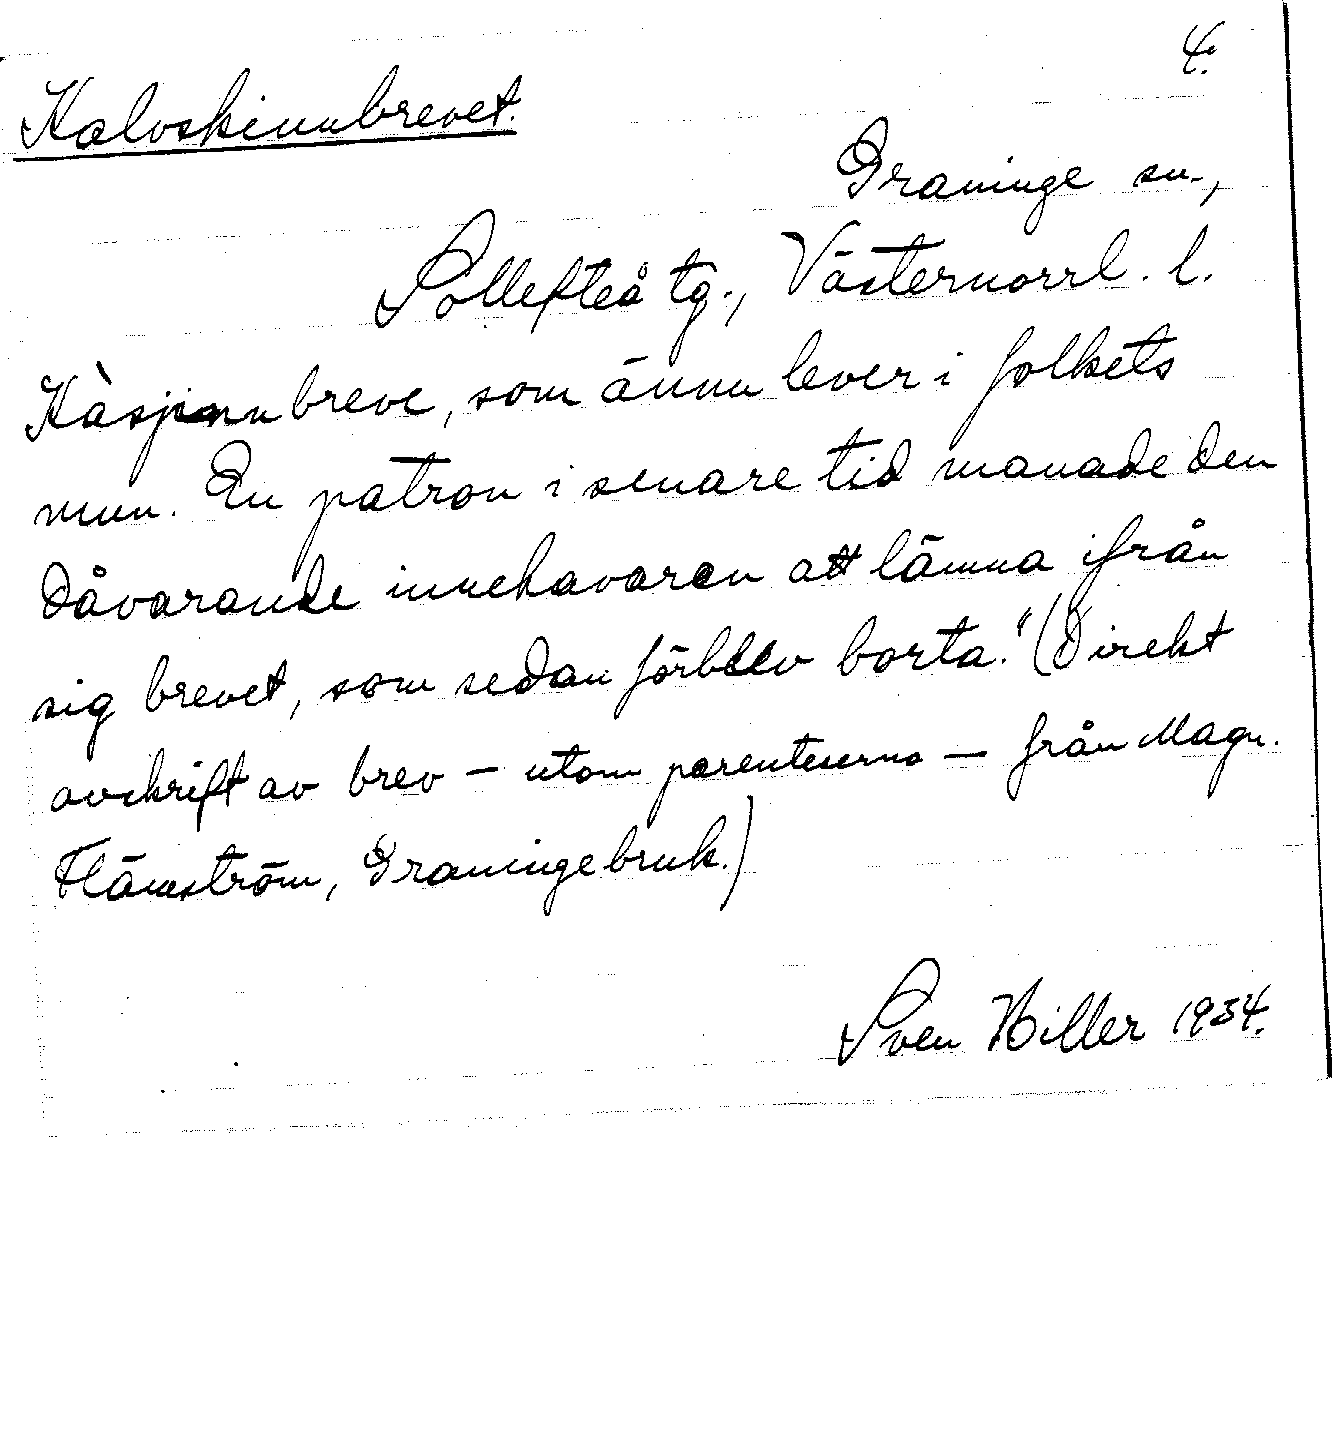 4.
Kalvskinnbrevet.
Graninge sn.,
Sollefteå tg., Västernorrl. l.
Kàsjinnbreve, som ännu lever i folkets
mun. En patron i senare tid manade den
dåvarande innehavaren att lämna ifrån
sig brevet, som sedan förblev borta." (Direkt
avskrift av brev - utom parenteserna - från Magn.
Flämström, Graningebruk.)
Sven Hiller 1934.